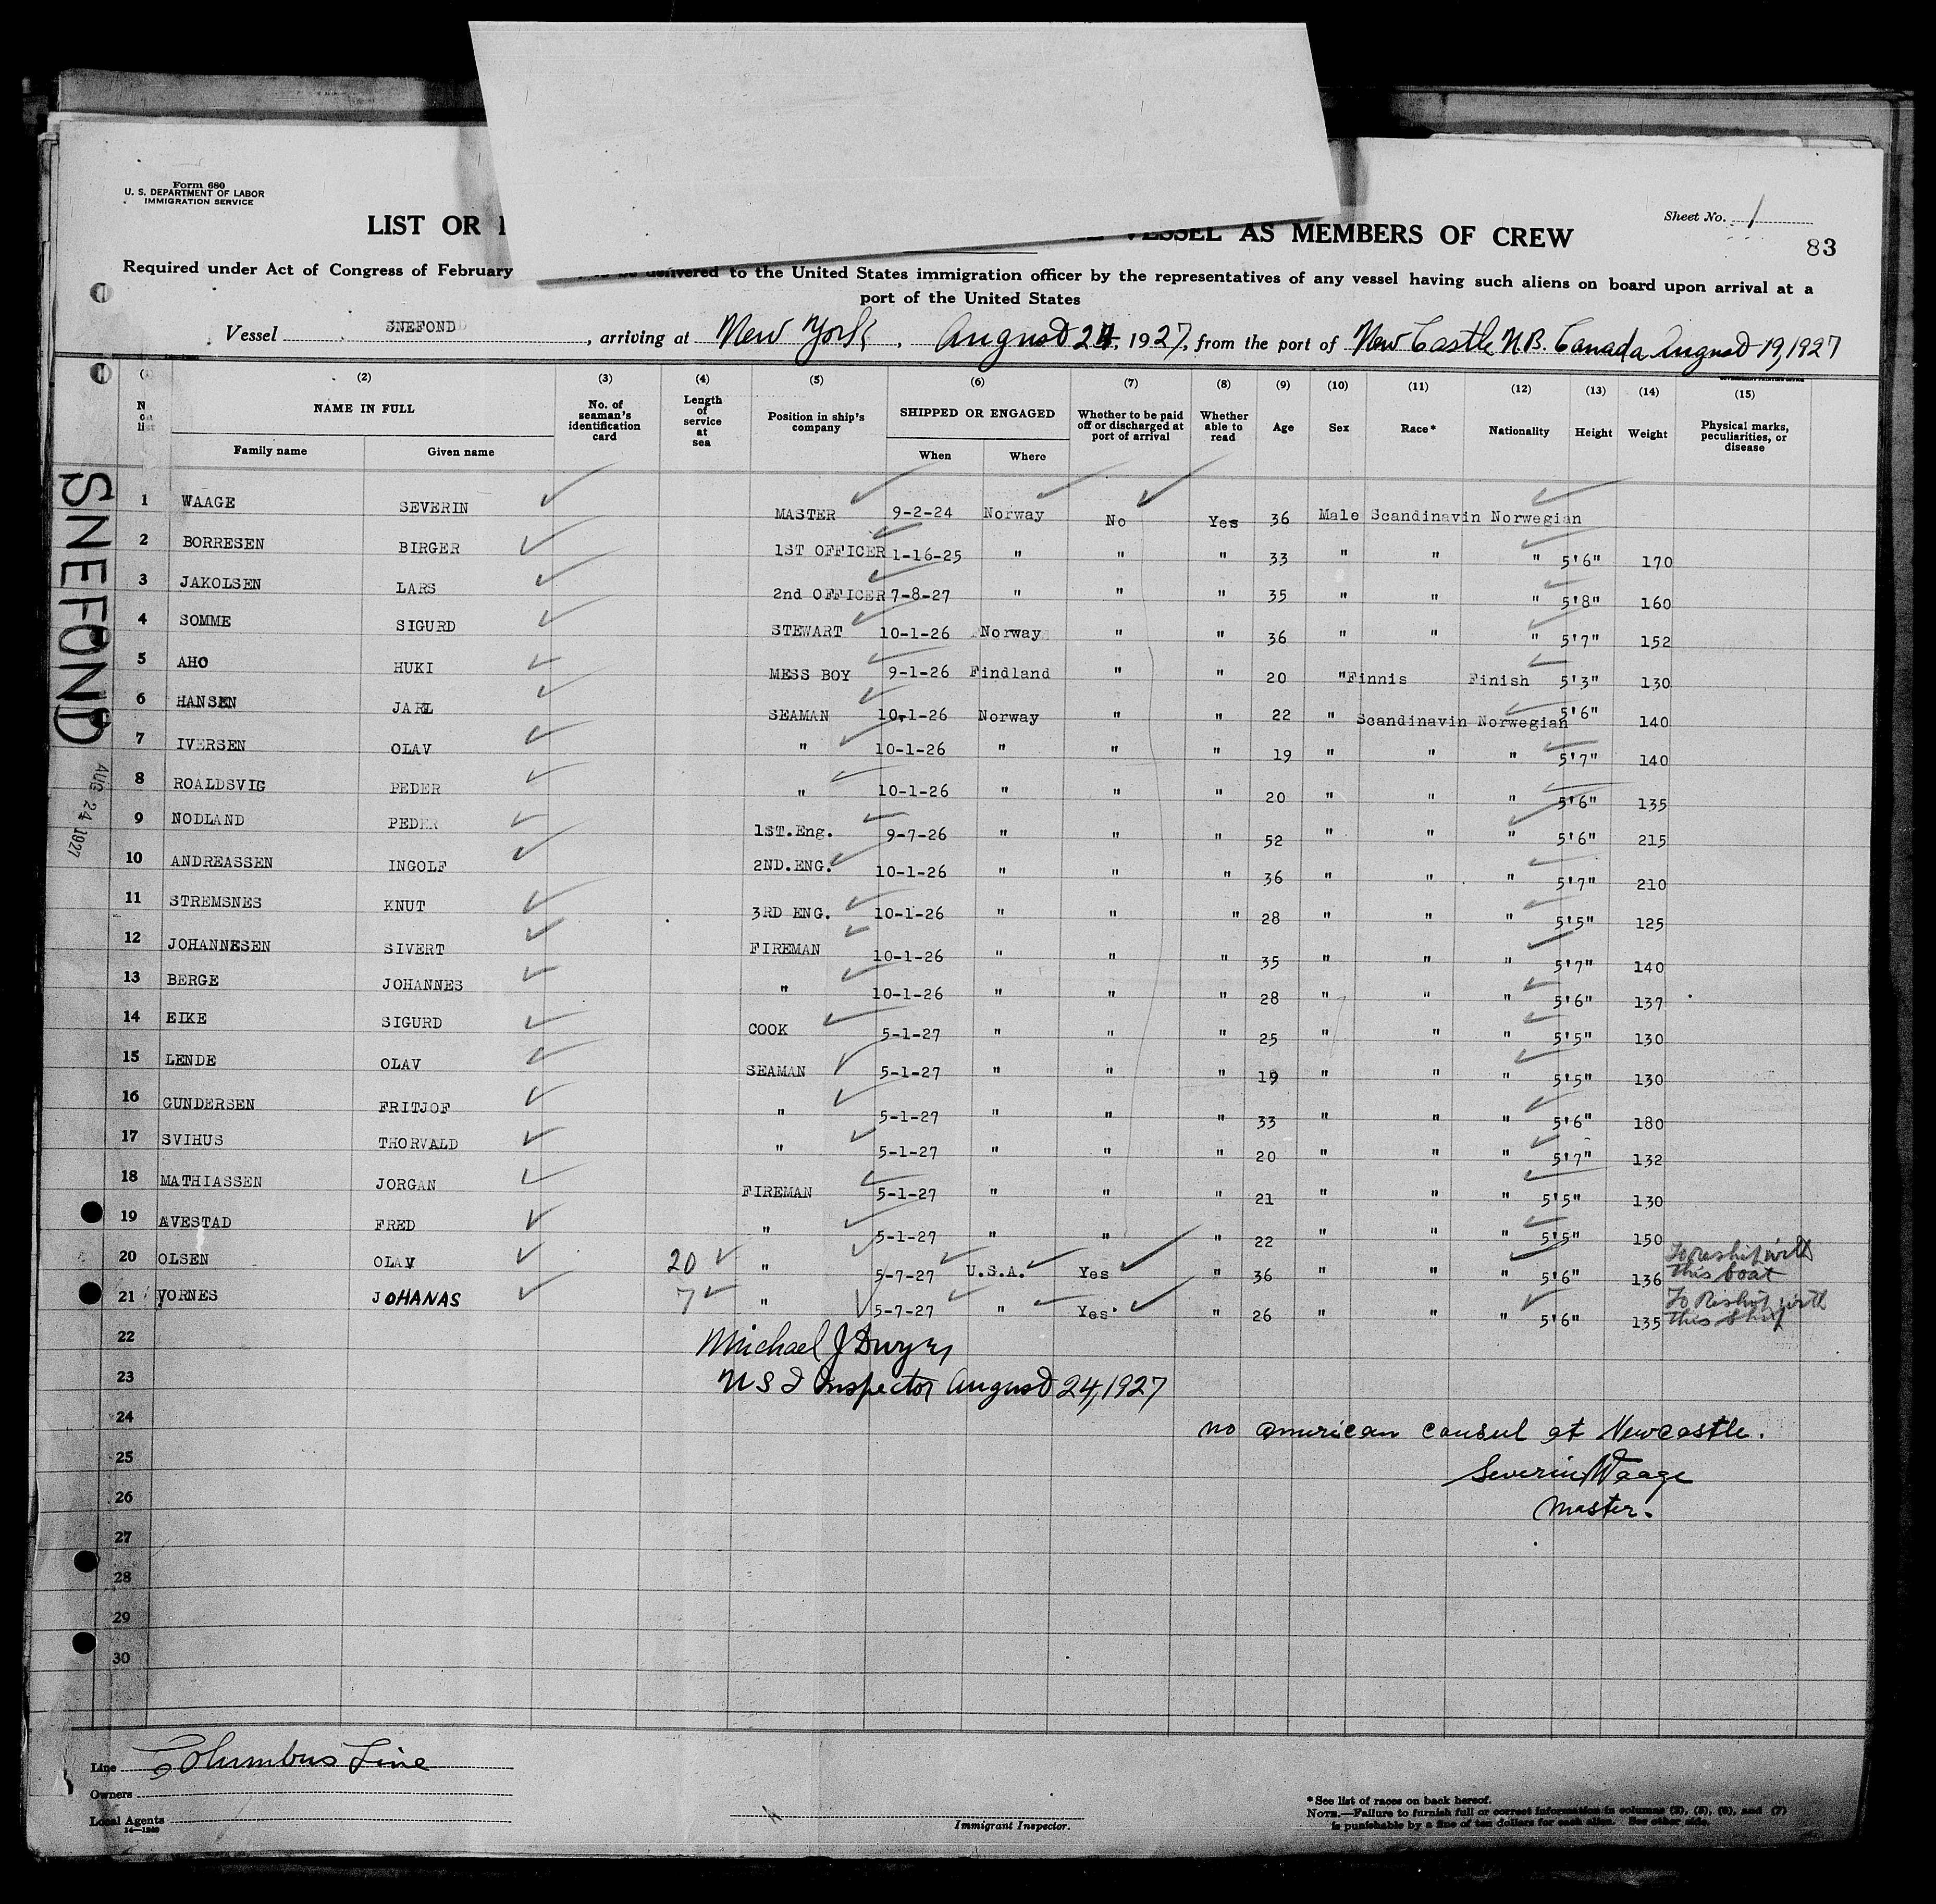 Form 680
U. S. DEPARTMENT OF LABOR
IMMIGRATION SERVICE
Sheet No. 1
83
LIST OR VESSEL AS MEMBERS OF CREW
Required under Act of Congress of February be delivered to the United States immigration officer by the representatives of any vessel having such aliens on board upon arrival at a
port of the United States
Vessel SNEFOND, arriving at New York, August 24, 1927, from the port of New Castle N.B. Canada August 19, 1927
(2) (3) (4) (5) (6) (7) (8) (9) (10) (11) (12) (13) (14) (15)
NAME IN FULL
Family name Given name
No. of seaman's identification card
Length of service at sea
Position in ship's company
SHIPPED OR ENGAGED
When Where
Whether to be paid off or discharged at port of arrival
Whether able to read
Age Sex Race* Nationality Height Weight
Physical marks, peculiarities, or disease
1 WAAGE SEVERIN MASTER 9-2-24 Norway No Yes 36 Male Scandinavin Norwegian
2 BORRESEN BIRGER 1ST OFFICER 1-16-25 " " " 33 " " " 5'6" 170
3 JAKOLSEN LARS 2nd OFFICER 7-8-27 " " " 35 " " " 5'8" 160
4 SOMME SIGURD STEWART 10-1-26 Norway " " 36 " " " 5'7" 152
5 AHO HUKI MESS BOY 9-1-26 Findland " " 20 " Finnis Finish 5'3" 130
6 HANSEN JARL SEAMAN 10-1-26 Norway " " 22 " Scandinavin Norwegian 5'6" 140
7 IVERSEN OLAV " 10-1-26 " " " 19 " " " 5'7" 140
8 ROALDSVIG PEDER " 10-1-26 " " " 20 " " " 5'6" 135
9 NODLAND PEDER 1ST.Eng. 9-7-26 " " " 52 " " " 5'6" 215
10 ANDREASSEN INGOLF 2ND.ENG. 10-1-26 " " " 36 " " " 5'7" 210
11 STREMSNES KNUT 3RD ENG. 10-1-26 " " " 28 " " " 5'5" 125
12 JOHANNESEN SIVERT FIREMAN 10-1-26 " " " 35 " " " 5'7" 140
13 BERGE JOHANNES " 10-1-26 " " " 28 " " " 5'6" 137
14 EIKE SIGURD COOK 5-1-27 " " " 25 " " " 5'5" 130
15 LENDE OLAV SEAMAN 5-1-27 " " " 19 " " " 5'5" 130
16 GUNDERSEN FRITJOF " 5-1-27 " " " 33 " " " 5'6" 180
17 SVIHUS THORVALD " 5-1-27 " " " 20 " " " 5'7" 132
18 MATHIASSEN JORGAN FIREMAN 5-1-27 " " " 21 " " " 5'5" 130
19 AVESTAD FRED " 5-1-27 " " " 22 " " " 5'5" 150
20 OLSEN OLAV 20 " 5-7-27 U.S.A. Yes " 36 " " " 5'6" 136 To reship with this boat
21 VORNES JOHANAS 7 " 5-7-27 " Yes. " 26 " " " 5'6" 135 To Reship with this ship
22 Michael J Dwyer
23 U S I Inspector August 24, 1927
24 no american consul at Newcastle.
25 Severin Waage
26 Master.
27
28
29
30
SNEFOND
AUG 24 1927
Line Columbus Line
Owners
Local Agents
14—1240
Immigrant Inspector.
* See list of races on back hereof.
NOTE.—Failure to furnish full or correct information in columns (2), (5), (6), and (7)
is punishable by a fine of ten dollars for each alien. See other side.